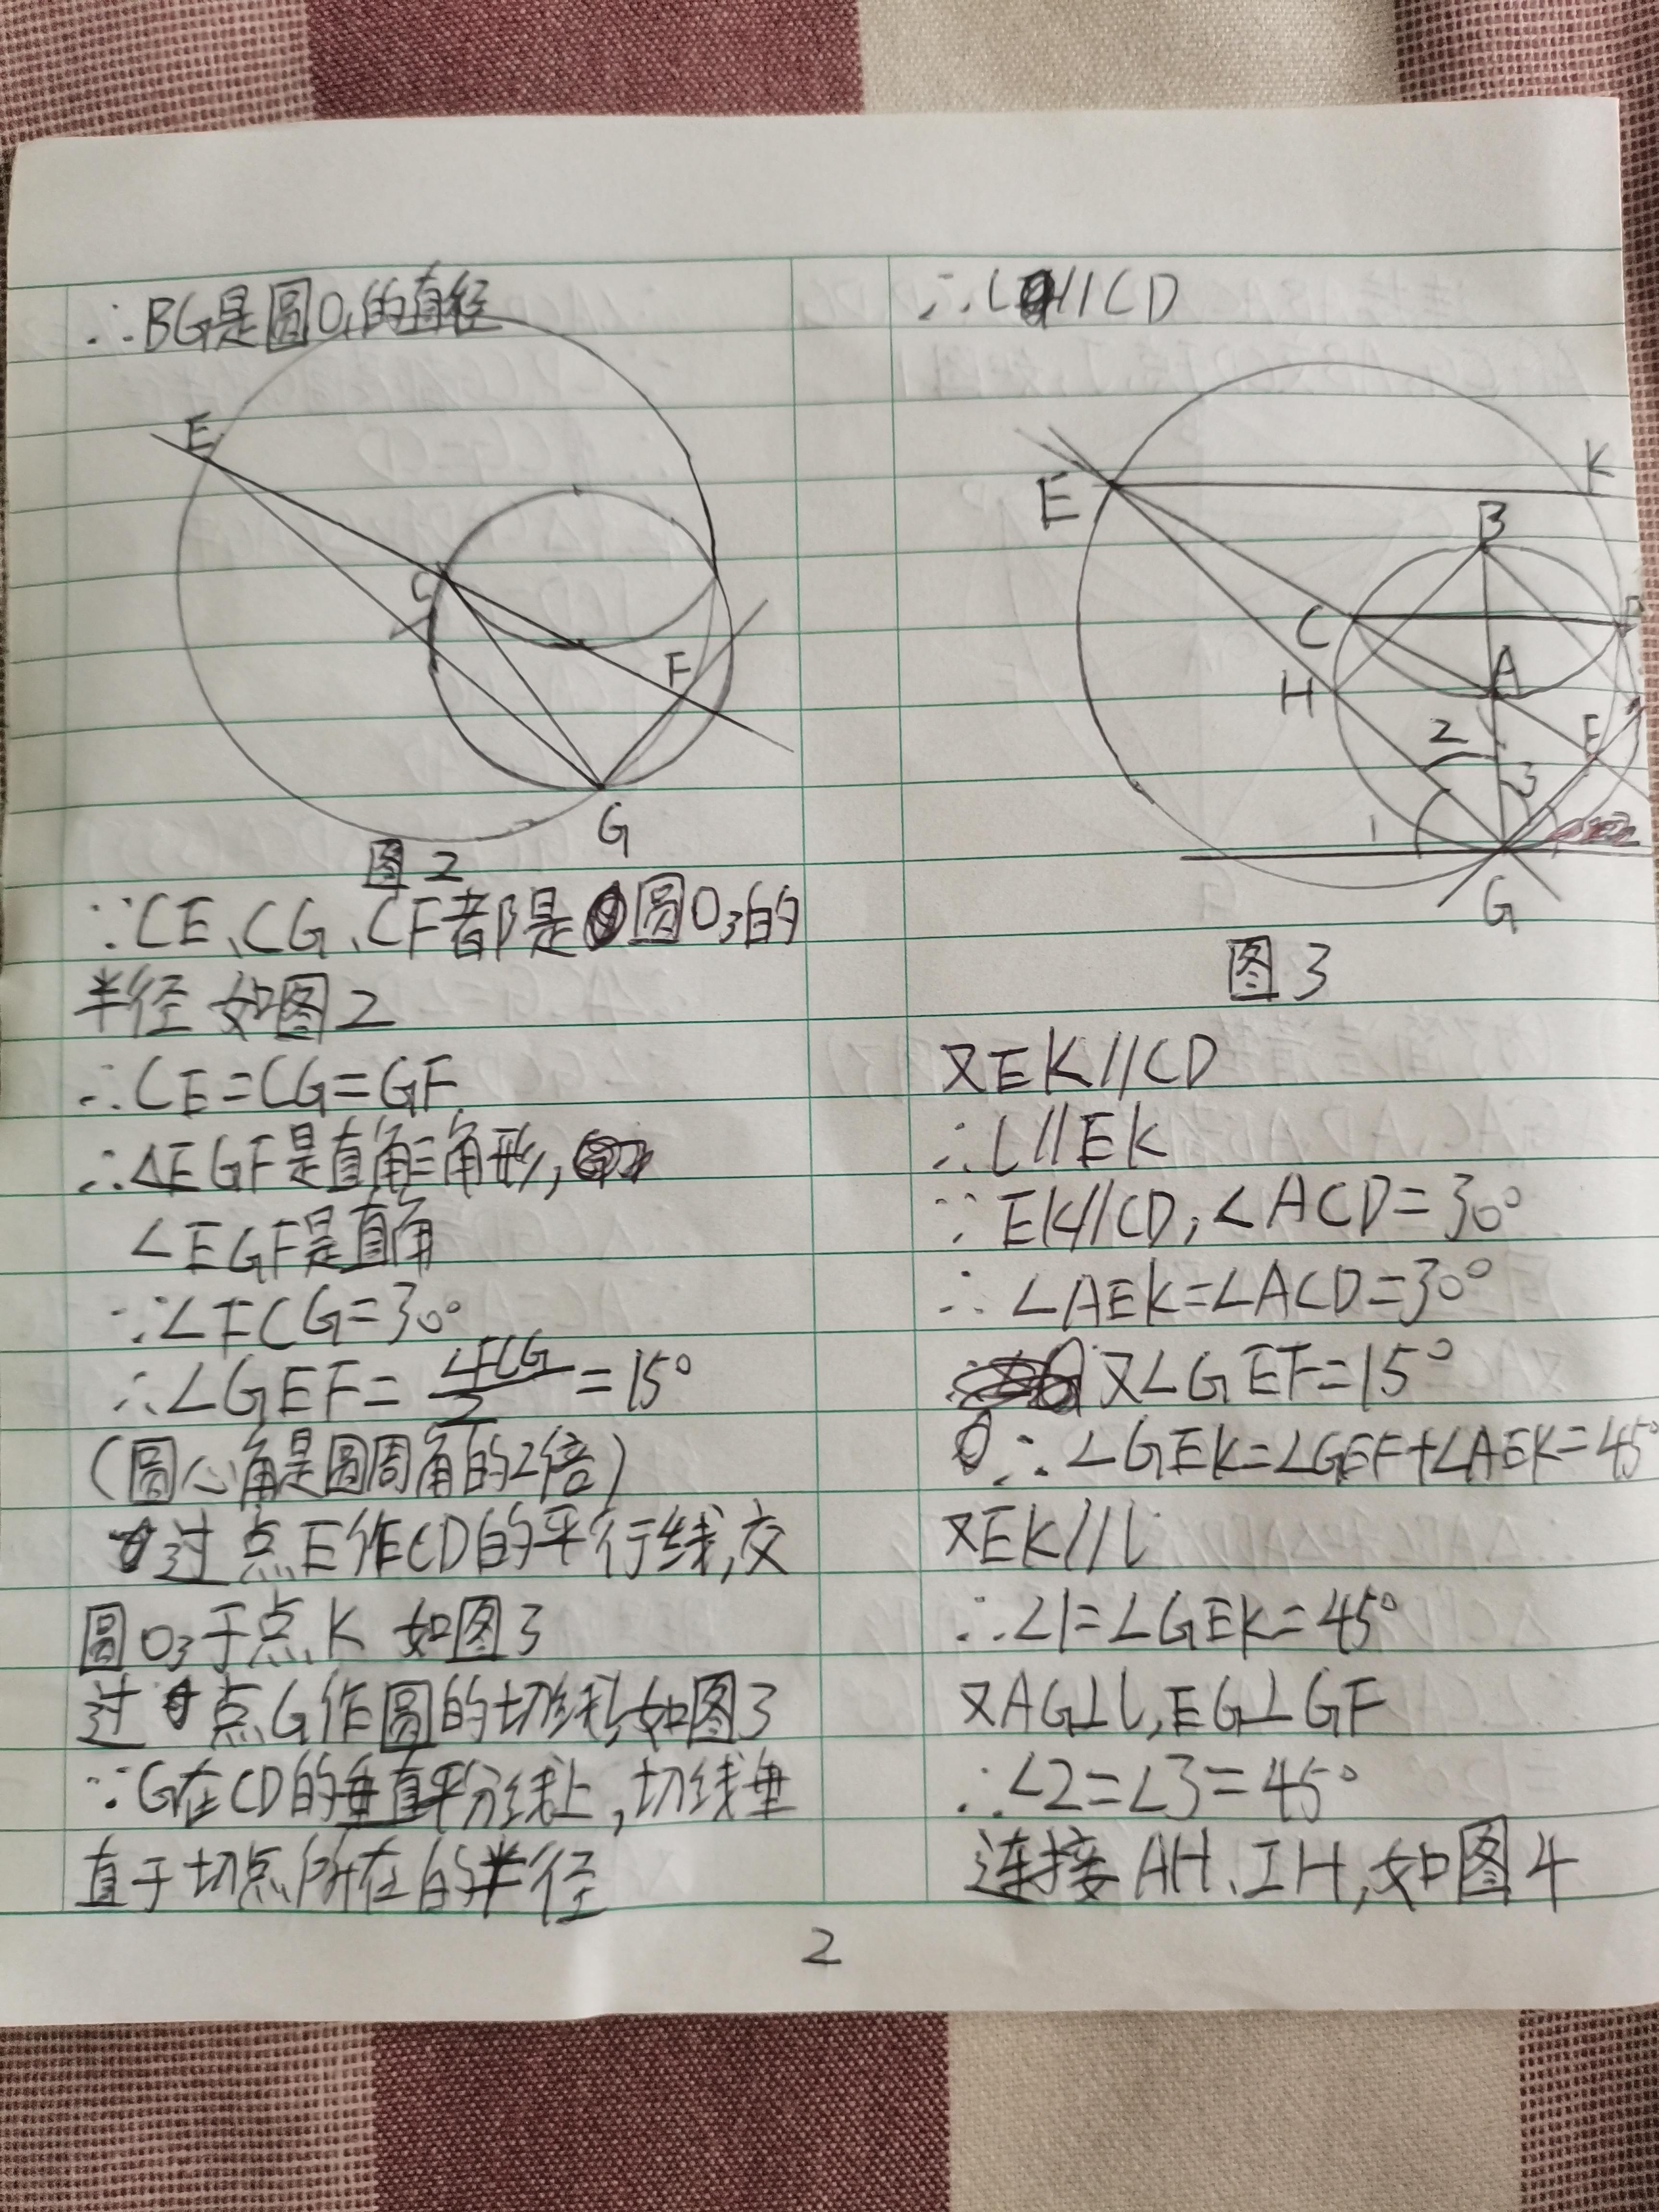 ∴BG是圆O₁的直径
E
C
F
G
图2
∵CE、CG、CF都是圆O₃的
半径 如图2
∴CE=CG=GF
∴△EGF是直角三角形,
∠EGF是直角
∵∠FCG=30°
∴∠GEF=∠FCG/2=15°
(圆心角是圆周角的2倍)
过点E作CD的平行线,交
圆O₃于点K 如图3
过点G作圆的切线l,如图3
∵G在CD的垂直平分线上,切线垂
直于切点所在的半径
∴l//CD
E
K
B
C
A
H
F
2
3
1
G
图3
又EK//CD
∴l//EK
∵EK//CD,∠ACD=30°
∴∠AEK=∠ACD=30°
又∠GEF=15°
∴∠GEK=∠GEF+∠AEK=45°
又EK//l
∴∠1=∠GEK=45°
又AG⊥l,EG⊥GF
∴∠2=∠3=45°
连接AH、IH,如图4
2